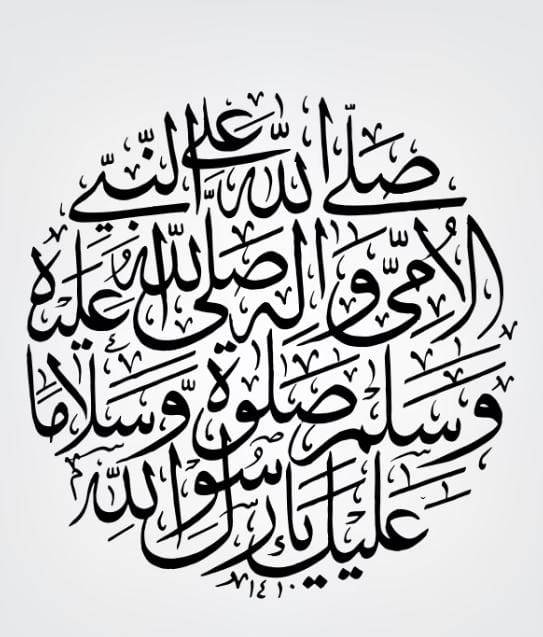 صَلَّى اللهُ عَلَى النَّبِيِّ
الْأُمِّيِّ وَآلِهِ صَلَّى اللهُ عَلَيْهِ
وَسَلَّمْ صَلٰوةً وَّسَلَامًا
عَلَيْكَ يَا رَسُوْلَ اللهِ
١٤١٠